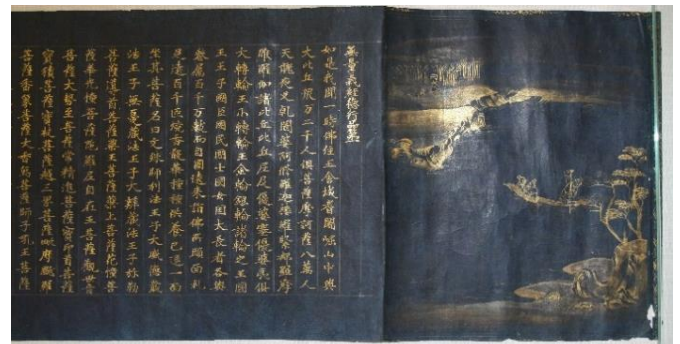 無量義經德行品第一
如是我聞一時佛住王舍城耆闍崛山中與
大比丘眾萬二千人俱菩薩摩訶薩八萬人
天龍夜叉乾闥婆阿修羅迦樓羅緊那羅摩
睺羅伽諸比丘比丘尼及優婆塞優婆夷俱
大轉輪王小轉輪王金輪銀輪諸輪之王國
王王子國臣國民國士國女國大長者各與
眷屬百千萬數而自圍遶來詣佛所頭面禮
足遶百千匝燒香散華種種供養已退一面
坐其菩薩名曰文殊師利法王子大威德藏
法王子無憂藏法王子大辯藏法王子弥勒
菩薩導首菩薩藥王菩薩藥上菩薩花幢菩
薩華光幢菩薩陀羅尼自在王菩薩觀世音
菩薩大勢至菩薩常精進菩薩寶印首菩薩
寶積菩薩寶杖菩薩越三界菩薩毗摩颰羅
菩薩香象菩薩大香象菩薩師子吼王菩薩